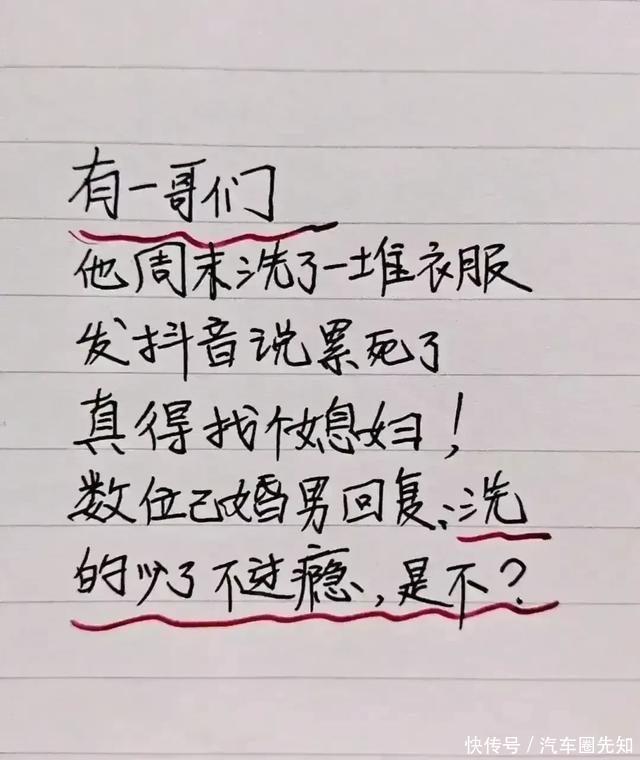 有一哥们
他周末洗了一堆衣服
发抖音说累死了
真得找个媳妇！
数位已婚男回复：洗
的少了不过瘾，是不？
快传号／汽车圈先知